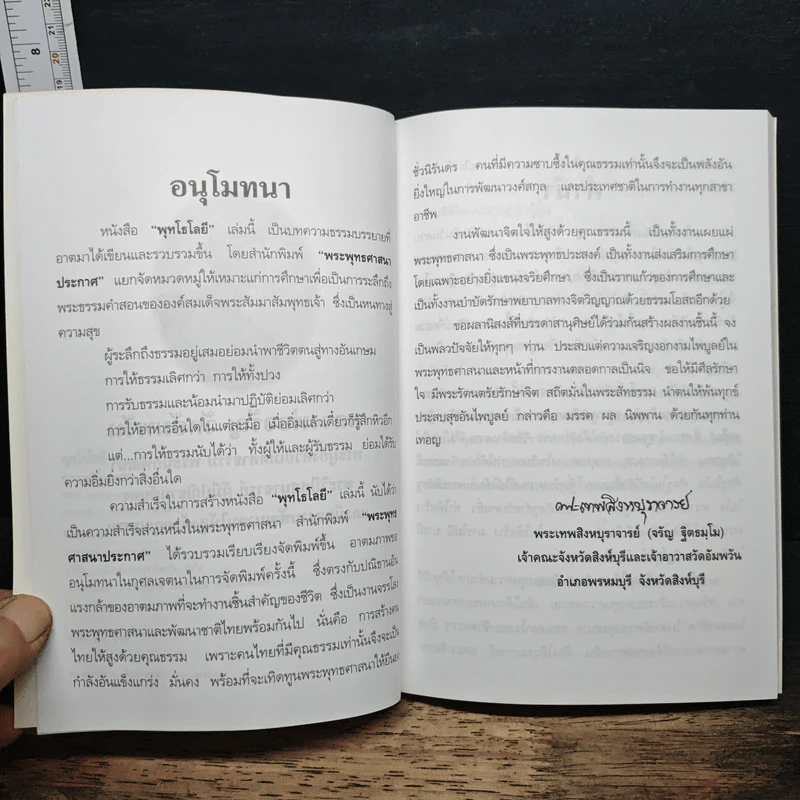 8
19
20
21
อนุโมทนา
หนังสือ "พุทโธโลยี" เล่มนี้ เป็นบทความธรรมบรรยายที่
อาตมาได้เขียนและรวบรวมขึ้น โดยสำนักพิมพ์ "พระพุทธศาสนา
ประกาศ" แยกจัดหมวดหมู่ให้เหมาะแก่การศึกษาเพื่อเป็นการระลึกถึง
พระธรรมคำสอนขององค์สมเด็จพระสัมมาสัมพุทธเจ้า ซึ่งเป็นหนทางสู่
ความสุข
ผู้ระลึกถึงธรรมอยู่เสมอย่อมนำพาชีวิตตนสู่ทางอันเกษม
การให้ธรรมเลิศกว่า การให้ทั้งปวง
การรับธรรมและน้อมนำมาปฏิบัติย่อมเลิศกว่า
การให้อาหารอื่นใดในแต่ละมื้อ เมื่ออิ่มแล้วเดี๋ยวก็รู้สึกหิวอีก
แต่...การให้ธรรมนับได้ว่า ทั้งผู้ให้และผู้รับธรรม ย่อมได้รับ
ความอิ่มยิ่งกว่าสิ่งอื่นใด
ความสำเร็จในการสร้างหนังสือ "พุทโธโลยี" เล่มนี้ นับได้ว่า
เป็นความสำเร็จส่วนหนึ่งในพระพุทธศาสนา สำนักพิมพ์ "พระพุทธ
ศาสนาประกาศ" ได้รวบรวมเรียบเรียงจัดพิมพ์ขึ้น อาตมภาพขอ
อนุโมทนาในกุศลเจตนาในการจัดพิมพ์ครั้งนี้ ซึ่งตรงกับปณิธานอัน
แรงกล้าของอาตมภาพที่จะทำงานชิ้นสำคัญของชีวิต ซึ่งเป็นงานจรรโลง
พระพุทธศาสนาและพัฒนาชาติไทยพร้อมกันไป นั่นคือ การสร้างคน
ไทยให้สูงด้วยคุณธรรม เพราะคนไทยที่มีคุณธรรมเท่านั้นจึงจะเป็น
กำลังอันแข็งแกร่ง มั่นคง พร้อมที่จะเทิดทูนพระพุทธศาสนาให้ยืนยง
ชั่วนิรันดร คนที่มีความซาบซึ้งในคุณธรรมเท่านั้นจึงจะเป็นพลังอัน
ยิ่งใหญ่ในการพัฒนาวงศ์สกุล และประเทศชาติในการทำงานทุกสาขา
อาชีพ
งานพัฒนาจิตใจให้สูงด้วยคุณธรรมนี้ เป็นทั้งงานเผยแผ่
พระพุทธศาสนา ซึ่งเป็นพุทธประสงค์ เป็นทั้งงานส่งเสริมการศึกษา
โดยเฉพาะอย่างยิ่งแขนงจริยศึกษา ซึ่งเป็นรากแก้วของการศึกษาและ
เป็นทั้งงานบำบัดรักษาพยาบาลทางจิตวิญญาณด้วยธรรมโอสถอีกด้วย
ขอผลานิสงส์ที่บรรดาสานุศิษย์ได้ร่วมกันสร้างผลงานชิ้นนี้ จง
เป็นพลวปัจจัยให้ทุกๆ ท่าน ประสบแต่ความเจริญงอกงามไพบูลย์ใน
พระพุทธศาสนาและหน้าที่การงานตลอดกาลเป็นนิจ ขอให้มีศีลรักษา
ใจ มีพระรัตนตรัยรักษาจิต สถิตมั่นในพระสัทธรรม นำตนให้พ้นทุกข์
ประสบสุขอันไพบูลย์ กล่าวคือ มรรค ผล นิพพาน ด้วยกันทุกท่าน
เทอญ
พระเทพสิงหบุราจารย์
พระเทพสิงหบุราจารย์ (จรัญ ฐิตธมฺโม)
เจ้าคณะจังหวัดสิงห์บุรีและเจ้าอาวาสวัดอัมพวัน
อำเภอพรหมบุรี จังหวัดสิงห์บุรี